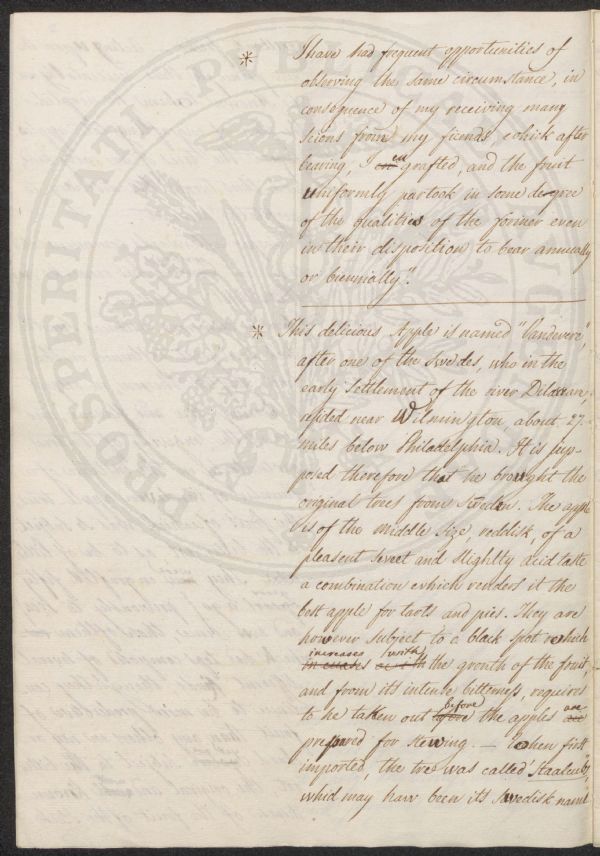 * I have had frequent opportunities of
observing the same circumstance, in
consequence of my receiving many
scions from my friends, which after
leaving, I en grafted, and the fruit
uniformly partook in some degree
of the qualities of the former even
in their disposition to bear annually
or biennially".
* This delicious Apple is named "Vandevere",
after one of the Swedes, who in the
early settlement of the river Dilawar,
resided near Wilmington, about 27
miles below Philadelphia. It is sup-
posed therefore that he brought the
original trees from Sweden. The apple
is of the middle size, reddish, of a
pleasent sweet and slightly acid taste
a combination which renders it the
best apple for tarts and pies. They are
however subject to a black spot which
increases with
the growth of the fruit,
and from its intense bitterness, requires
to be taken out before the apples are
prepared for stewing. — When first
imported, the tree was called "Staalcubs,
which may have been its Swedish name
PROSPERITATI PUBLICAE